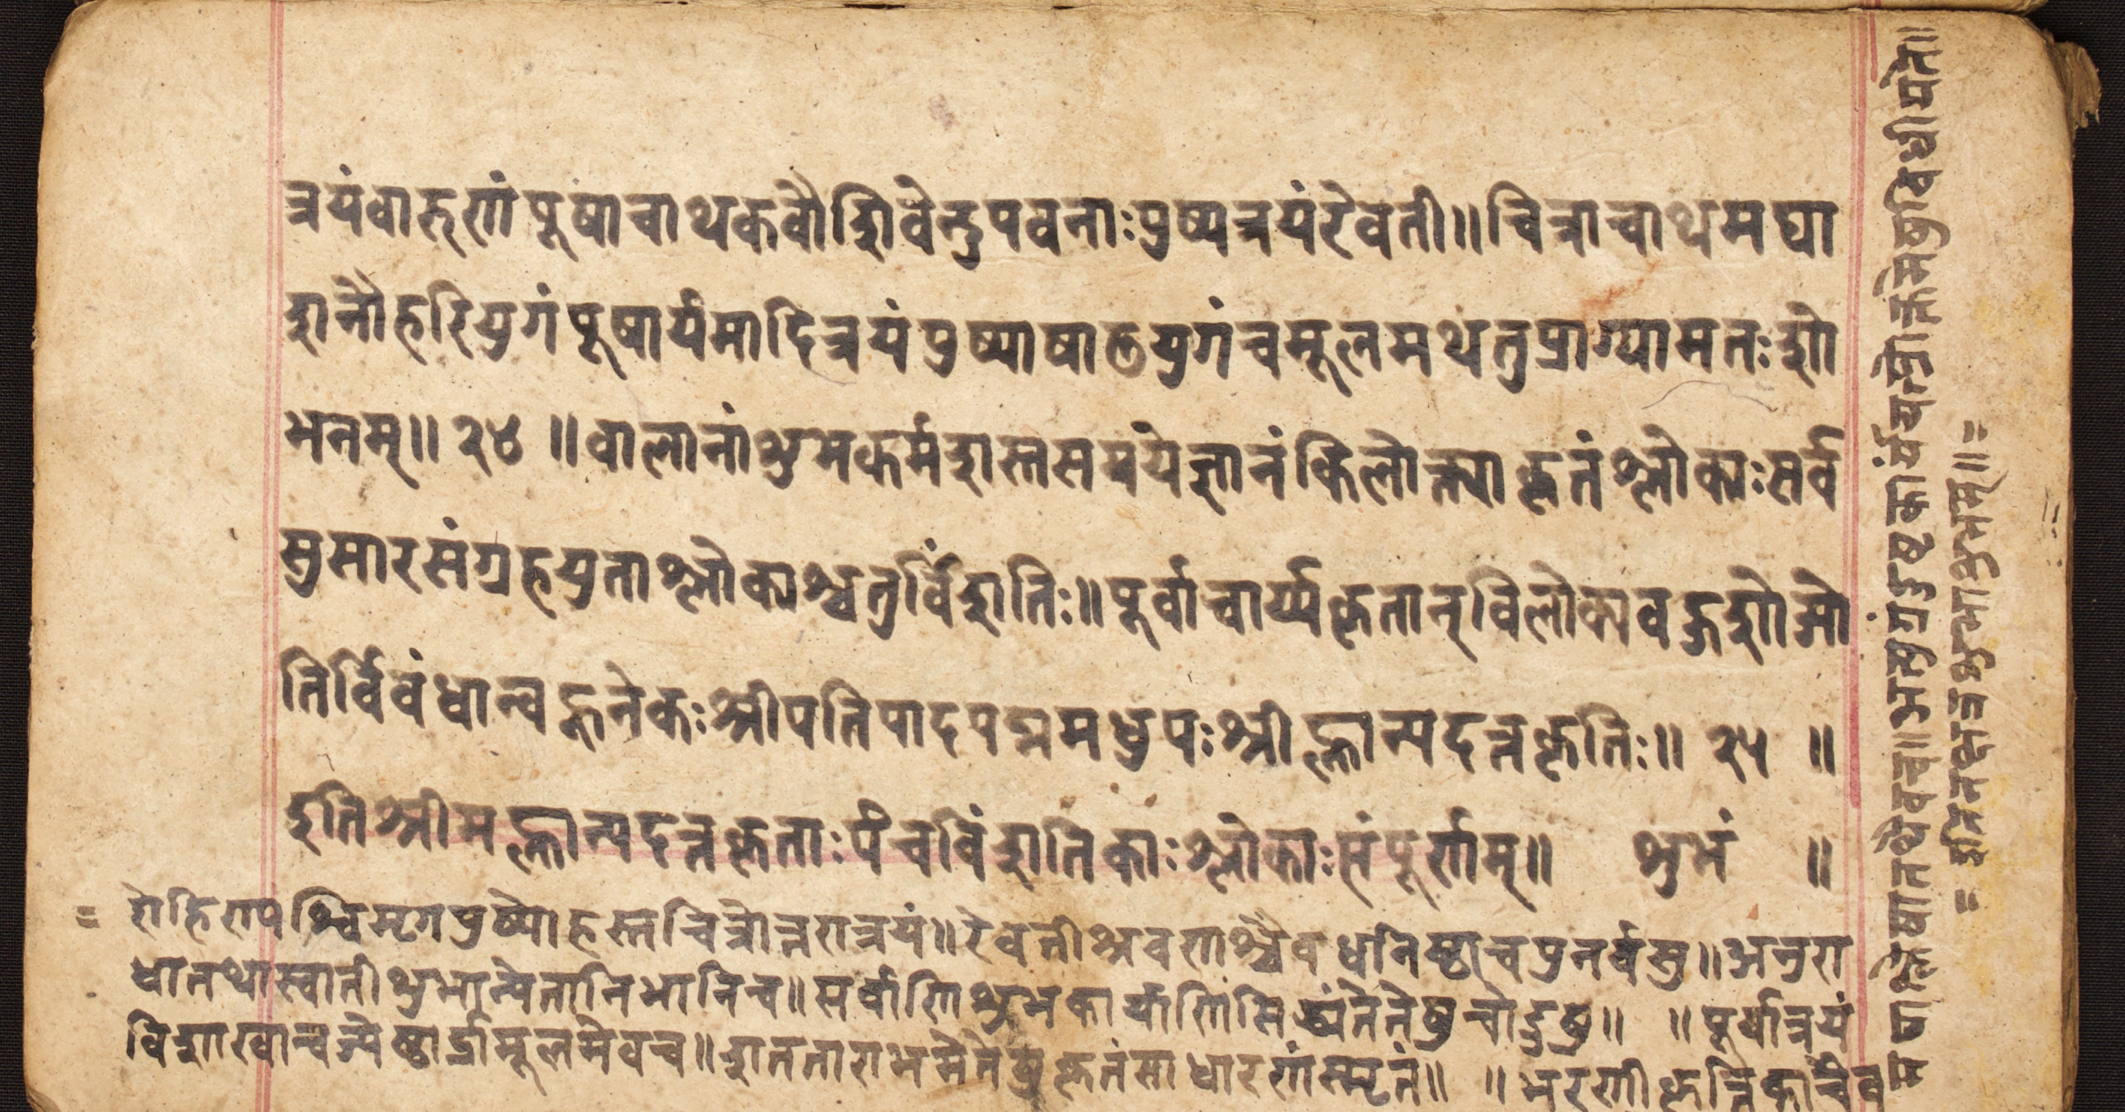 त्रयंवारुणं पूषाचाथकवौशिवेन्दुपवनाःपुष्यत्रयंरेवती॥चित्राचाथमघा
शनौहरियुगंपूषार्यमादित्रयंपुष्याषाठयुगंचमूलमथतुप्राग्याम्तःशो
भनम्॥२४॥वालानांशुभकर्मशास्तसमयेज्ञानंकिलोक्त्याकृतंश्लोक्यःसर्व
सुसारसंग्रहयुताश्लोक्याश्चतुर्विंशतिः॥पूर्वाचार्य्यकृतान्विलोक्यवज्गशोज्यो
तिर्विवंधान्वह्ननेकःश्रीपतिपादपद्ममधुपःश्रीह्लान्यदत्तकृतिः॥२५॥
इतिश्रीमह्लान्यदत्तकृताःपंचविंशतिकाःश्लोकाःसंपूर्णम्॥ शुभं ॥
= रोहिण्यश्विमृगपुष्यौहस्तचित्रोत्तरात्रयं॥रेवतीश्रवणश्चैवधनिष्ठाचपुनर्वसु॥अनुरा
धातथास्वातीशुभान्येतानिभानिच॥सर्वाणिशुभकार्याणिसिद्ध्यंतेतेषुचोडुषु॥ ॥पूर्वात्रयं
विशाखाचज्येष्ठार्द्रामूलमेवच॥शतताराभमेतेषुकृतंसाधारणंस्मृतं॥ ॥भरणीकृत्तिकाचैव
मघाश्लेषातथैवच॥अत्युग्रंदुष्टकार्यंयत्प्रोक्तमेषुविधीयते॥
= इतिनक्षत्रशुभाशुभम्॥=